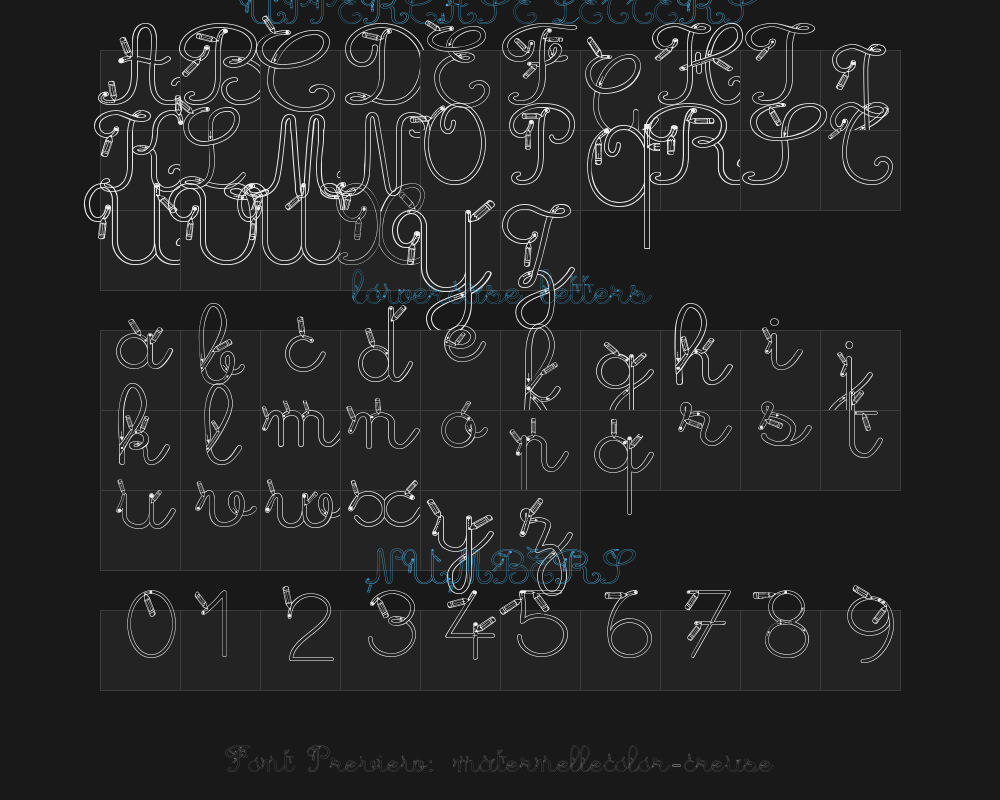 UPPERCASE LETTERS
A B C D E F G H I J
K L M N O P Q R S T
U V W X Y Z
lowercase letters
a b c d e f g h i j
k l m n o p q r s t
u v w x y z
NUMBERS
0 1 2 3 4 5 6 7 8 9
Font Preview: maternellecolor-creuse